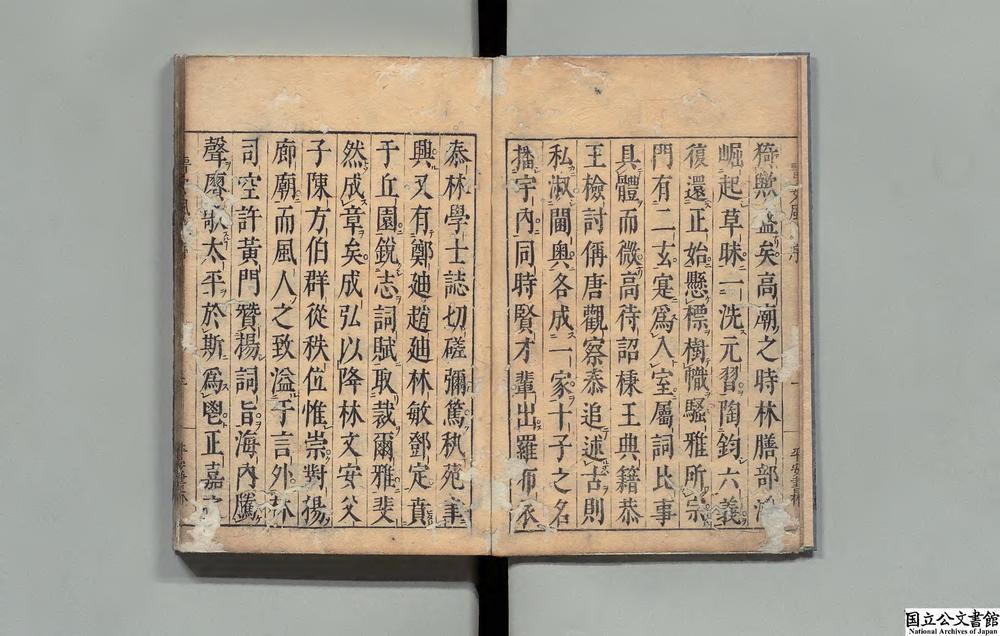 猗歟盛矣高廟之時林膳部
崛起草昧一洗元習陶鈞六義
復還正始懸標樹幟騷雅所宗
門有二玄寔為入室屬詞比事
具體而微高待詔棅王典籍恭
王檢討偁唐觀察泰追述古則
私淑閫奥各成一家十子之名
播宇內同時賢才輩出羅布衣
泰林學士誌切磋彌篤秋苑聿
興又有鄭廸趙廸林敏鄧定賁
于丘園銳志詞賦取裁爾雅斐
然成章矣成弘以降林文安父
子陳方伯群從秩位惟崇對揚
廊廟而風人之致溢于言外林
司空許黃門贊揚詞旨海內騰
聲廈歌太平於斯為鬯正嘉之
平安書林
国立公文書館
National Archives of Japan